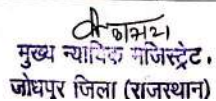 मुख्य न्यायिक मजिस्ट्रेट,
जोधपुर जिला (राजस्थान)